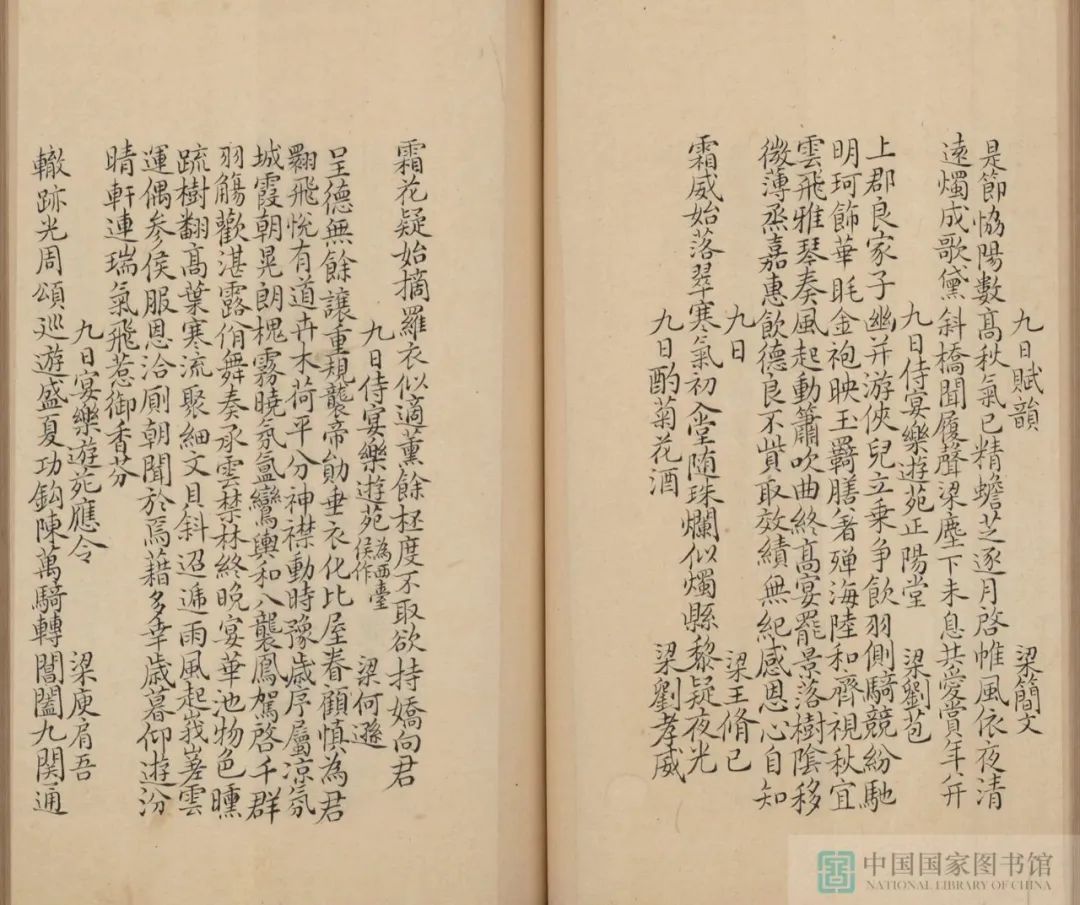 九日賦韻　梁簡文
是節協陽數高秋氣已精蟾芝逐月啓帷風依夜清
遠燭成歌黛斜橋聞履聲梁塵下未息共愛賞年并
九日侍宴樂遊苑正陽堂　梁劉苞
上郡良家子幽并游俠兒立乗争飲羽側騎競紛馳
明珂飾華眊金袍映玉羈膳羞殫海陸和齊視秋宜
雲飛雅琴奏風起動簫吹曲終髙宴罷景落樹陰移
微薄烝嘉惠飲德良不貲取效績無紀感恩心自知
九日　梁王脩已
霜威始落翠寒氣初入堂随珠爛似燭縣黎疑夜光
九日酌菊花酒　梁劉孝威
霜花疑始摘羅衣似適薫餘柸度不取欲持嬌向君
九日侍宴樂遊苑為西臺侯作　梁何遜
呈德無餘讓重規襲帝勛垂衣化比屋眷顧慎為君
翾飛悅有道卉木荷平分神襟動時豫歲序屬凉氛
城霞朝晃朗槐霧曉氛氲鸞輿和八襲鳳駕啓千群
羽觴歡湛露佾舞奏承雲禁林終晚宴華池物色曛
䟽樹翻髙葉寒流聚細文㒷斜迢遞雨風起峩嵳雲
運偶参侯服恩洽厠朝聞於焉藉多幸歲暮仰遊汾
晴軒連瑞氣飛惹御香芬
九日宴樂遊苑應令　梁庾肩吾
轍跡光周頌巡遊盛夏功鈎陳萬騎轉閶闔九関通
中国国家图书馆
NATIONAL LIBRARY OF CHINA